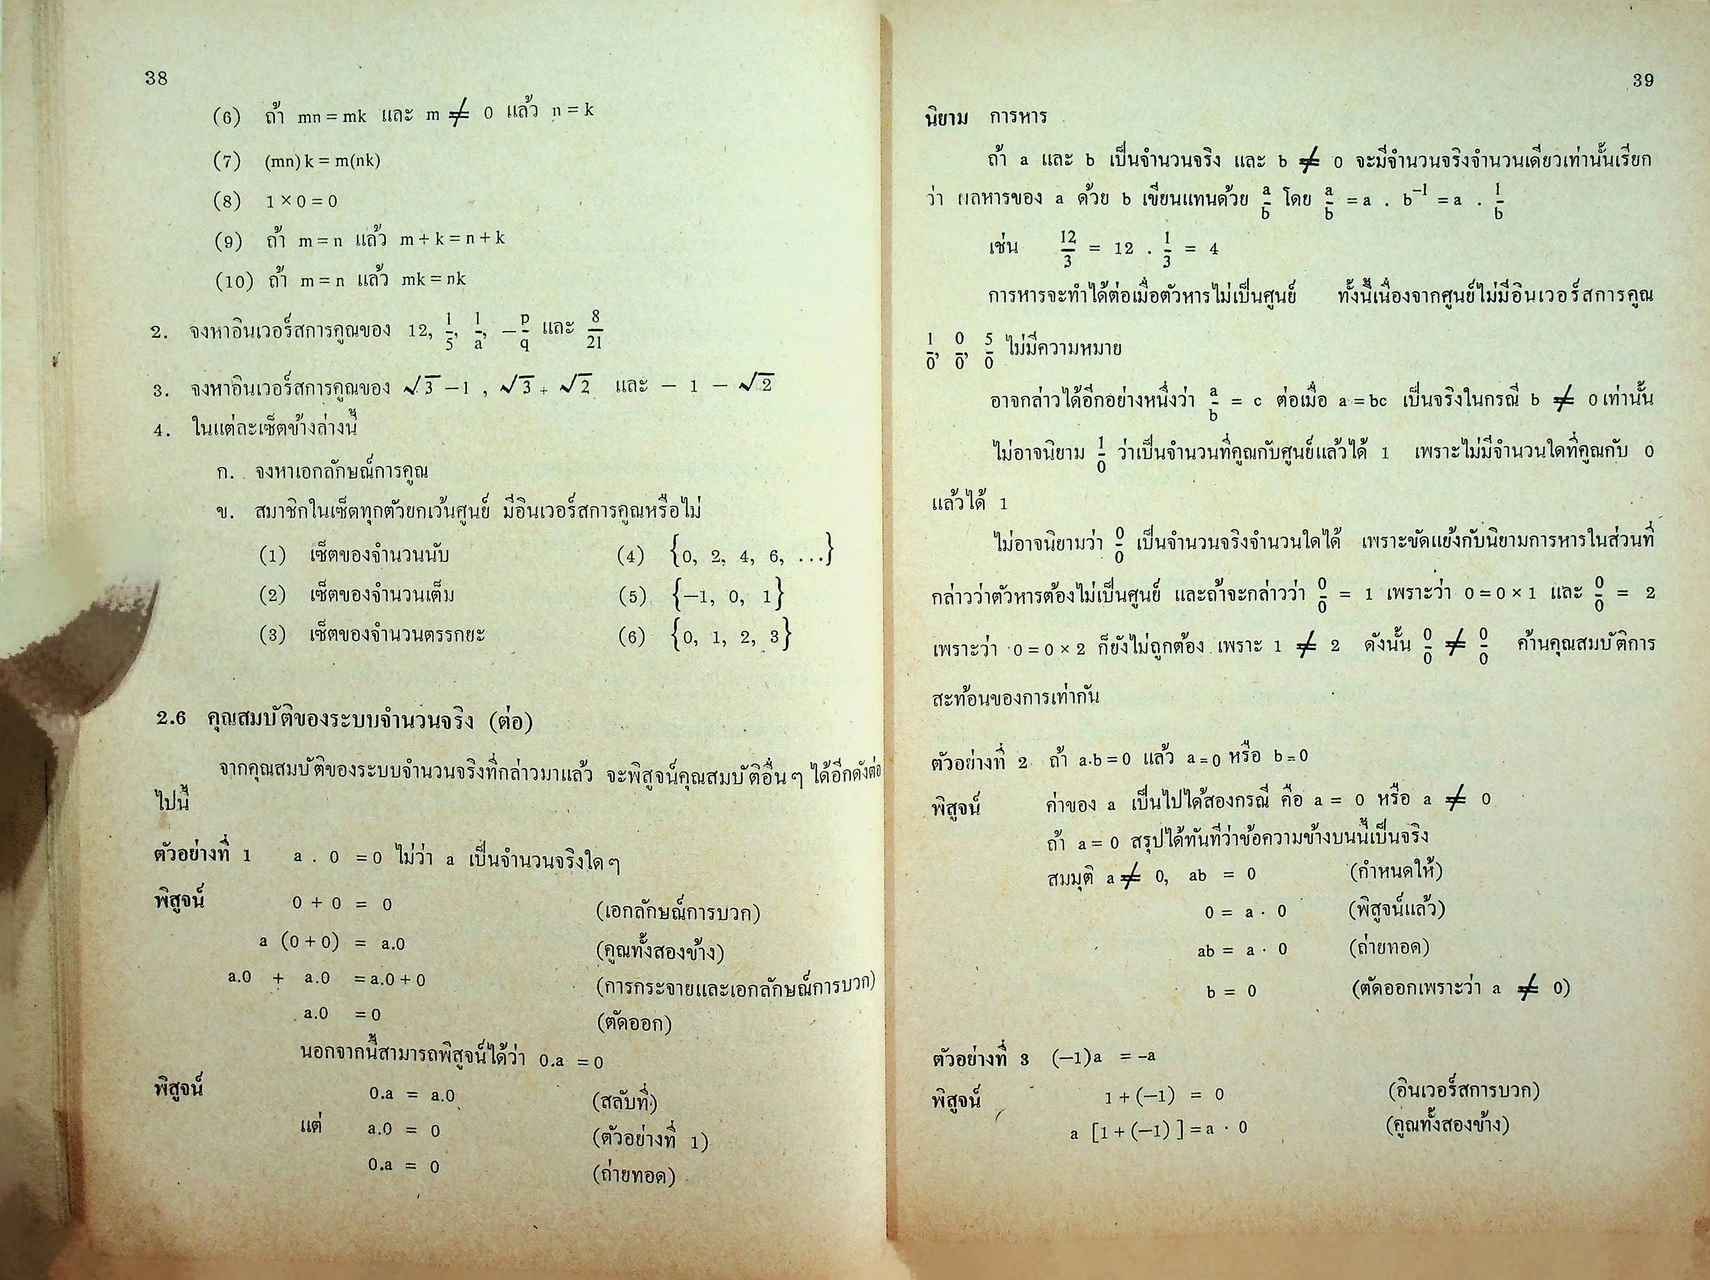 38
(6) ถ้า mn = mk และ m ≠ 0 แล้ว n = k
(7) (mn) k = m(nk)
(8) 1 × 0 = 0
(9) ถ้า m = n แล้ว m + k = n + k
(10) ถ้า m = n แล้ว mk = nk
2. จงหาอินเวอร์สการคูณของ 12, 1/5, 1/a, −p/q และ 8/21
3. จงหาอินเวอร์สการคูณของ √3 −1 , √3 + √2 และ − 1 − √2
4. ในแต่ละเซ็ตข้างล่างนี้
ก. จงหาเอกลักษณ์การคูณ
ข. สมาชิกในเซ็ตทุกตัวยกเว้นศูนย์ มีอินเวอร์สการคูณหรือไม่
(1) เซ็ตของจำนวนนับ (4) {0, 2, 4, 6, ...}
(2) เซ็ตของจำนวนเต็ม (5) {−1, 0, 1}
(3) เซ็ตของจำนวนตรรกยะ (6) {0, 1, 2, 3}
2.6 คุณสมบัติของระบบจำนวนจริง (ต่อ)
จากคุณสมบัติของระบบจำนวนจริงที่กล่าวมาแล้ว จะพิสูจน์คุณสมบัติอื่นๆ ได้อีกดังต่อ
ไปนี้
ตัวอย่างที่ 1 a . 0 = 0 ไม่ว่า a เป็นจำนวนจริงใดๆ
พิสูจน์ 0 + 0 = 0 (เอกลักษณ์การบวก)
a (0 + 0) = a.0 (คูณทั้งสองข้าง)
a.0 + a.0 = a.0 + 0 (การกระจายและเอกลักษณ์การบวก)
a.0 = 0 (ตัดออก)
นอกจากนี้สามารถพิสูจน์ได้ว่า 0.a = 0
พิสูจน์ 0.a = a.0 (สลับที่)
แต่ a.0 = 0 (ตัวอย่างที่ 1)
0.a = 0 (ถ่ายทอด)
39
นิยาม การหาร
ถ้า a และ b เป็นจำนวนจริง และ b ≠ 0 จะมีจำนวนจริงจำนวนเดียวเท่านั้นเรียก
ว่า ผลหารของ a ด้วย b เขียนแทนด้วย a/b โดย a/b = a . b⁻¹ = a . 1/b
เช่น 12/3 = 12 . 1/3 = 4
การหารจะทำได้ต่อเมื่อตัวหารไม่เป็นศูนย์ ทั้งนี้เนื่องจากศูนย์ไม่มีอินเวอร์สการคูณ
1/0, 0/0, 5/0 ไม่มีความหมาย
อาจกล่าวได้อีกอย่างหนึ่งว่า a/b = c ต่อเมื่อ a = bc เป็นจริงในกรณี b ≠ 0 เท่านั้น
ไม่อาจนิยาม 1/0 ว่าเป็นจำนวนที่คูณกับศูนย์แล้วได้ 1 เพราะไม่มีจำนวนใดที่คูณกับ 0
แล้วได้ 1
ไม่อาจนิยามว่า 0/0 เป็นจำนวนจริงจำนวนใดได้ เพราะขัดแย้งกับนิยามการหารในส่วนที่
กล่าวว่าตัวหารต้องไม่เป็นศูนย์ และถ้าจะกล่าวว่า 0/0 = 1 เพราะว่า 0 = 0 × 1 และ 0/0 = 2
เพราะว่า 0 = 0 × 2 ก็ยังไม่ถูกต้อง เพราะ 1 ≠ 2 ดังนั้น 0/0 ≠ 0/0 ค้านคุณสมบัติการ
สะท้อนของการเท่ากัน
ตัวอย่างที่ 2 ถ้า a.b = 0 แล้ว a = 0 หรือ b = 0
พิสูจน์ ค่าของ a เป็นไปได้สองกรณี คือ a = 0 หรือ a ≠ 0
ถ้า a = 0 สรุปได้ทันทีว่าข้อความข้างบนนี้เป็นจริง
สมมุติ a ≠ 0, ab = 0 (กำหนดให้)
0 = a . 0 (พิสูจน์แล้ว)
ab = a . 0 (ถ่ายทอด)
b = 0 (ตัดออกเพราะว่า a ≠ 0)
ตัวอย่างที่ 3 (−1)a = −a
พิสูจน์ 1 + (−1) = 0 (อินเวอร์สการบวก)
a [1 + (−1) ] = a . 0 (คูณทั้งสองข้าง)